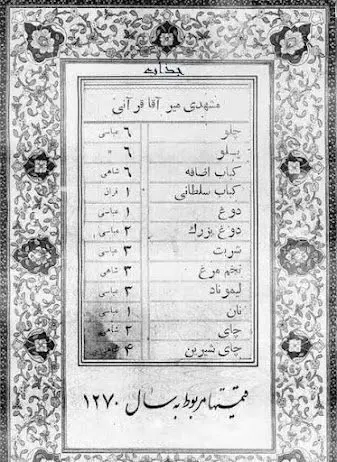 مشهدی میر آقا قرآنی
چلو ۶ عباسی
پلو ۶ "
کباب اضافه ۶ شاهی
کباب سلطانی ۱ قران
دوغ ۱ عباسی
دوغ بزرگ ۲ عباسی
شربت ۳ عباسی
تخم مرغ ۳ شاهی
لیموناد ۳ عباسی
نان ۱ عباسی
چای ۲ شاهی
چای شیرین ۴ شاهی
قیمتها مربوط به سال ۱۲۷۰